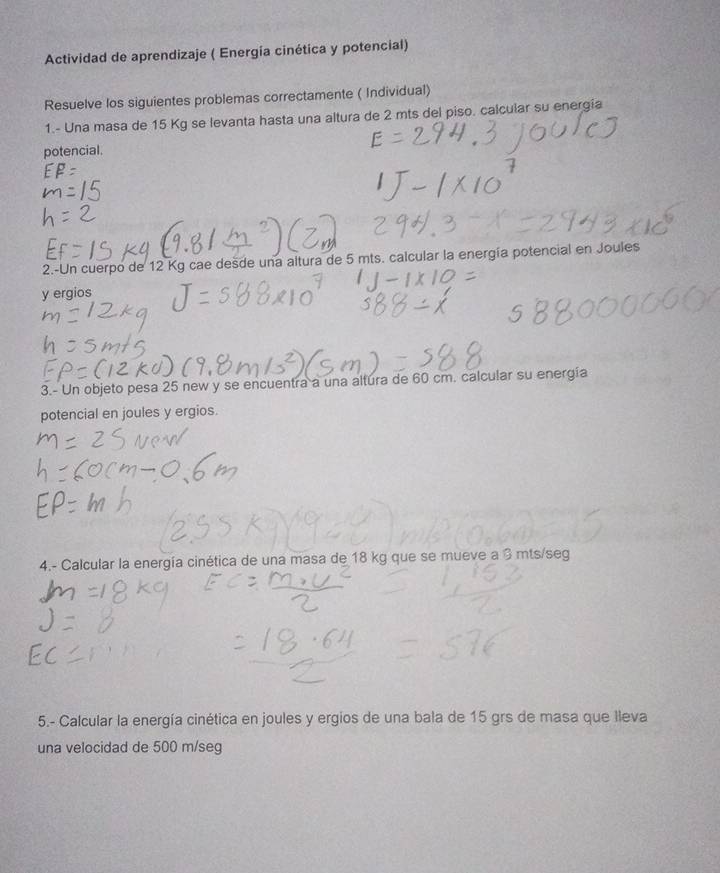 Actividad de aprendizaje ( Energía cinética y potencial)
Resuelve los siguientes problemas correctamente ( Individual)
1.- Una masa de 15 Kg se levanta hasta una altura de 2 mts del piso. calcular su energía
potencial.
E = 294.3 joules
EP=
m=15
1J-1x10^7
h=2
294.3 - x =2943x10^6
EP=15 kg (9.81 m^2)(2m)
2.-Un cuerpo de 12 Kg cae desde una altura de 5 mts. calcular la energía potencial en Joules
y ergios
m=12kg
J=588x10^7
1J-1x10=
588-x
588000000
h=5mts
EP=(12 KG)(9.8m/s^2)(5m)=588
3.- Un objeto pesa 25 new y se encuentra a una altura de 60 cm. calcular su energía
potencial en joules y ergios.
m=25 New
h=60cm-0.6m
EP=mh
(2.55 K
4.- Calcular la energía cinética de una masa de 18 kg que se mueve a 8 mts/seg
m=18kg
EC=m.v^2/2
J=8
EC=
=18.64/2 = 576
5.- Calcular la energía cinética en joules y ergios de una bala de 15 grs de masa que lleva
una velocidad de 500 m/seg